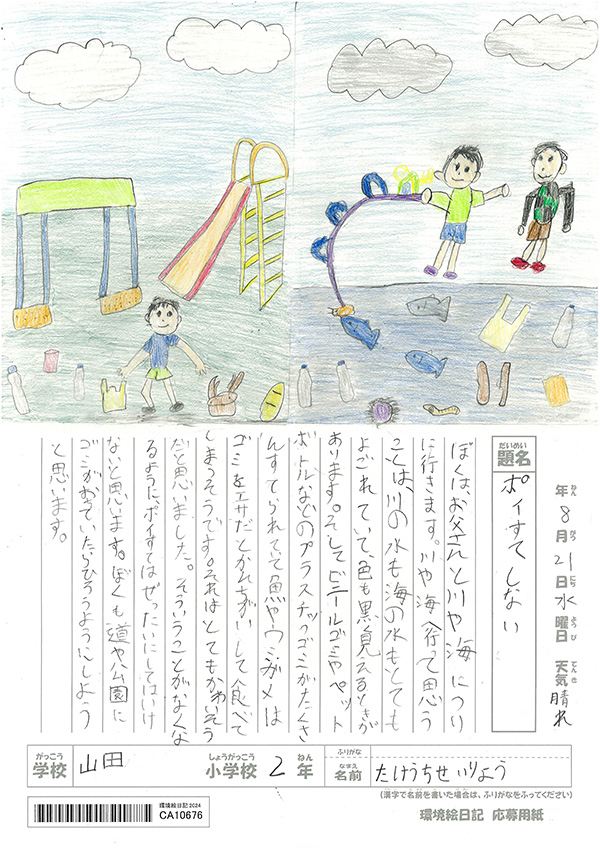 年 8月21日 水曜日 天気 晴れ
ねん がつ にち ようび てんき
だいめい
題名 ポイすてしない
ぼくは、お父さんと川や海につり
に行きます。川や海へ行って思う
ことは、川の水も海の水もとても
よごれていて、色も黒く見えるときが
あります。そしてビニールゴミやペット
ボトルなどのプラスチックゴミがたくさ
んすてられていて魚やウミガメは
ゴミをエサだとかんちがいして食べて
しまうそうです。それはとてもかわいそう
だと思いました。そういうことがなくな
るようにポイすてはぜったいにしてはいけ
ないと思います。ぼくも道や公園に
ゴミがおちていたらひろうようにしよう
と思います。
がっこう しょうがっこう ねん ふりがな
学校 山田 小学校 2年 なまえ 名前 たけうちせいりょう
(漢字で名前を書いた場合は、ふりがなをふってください)
環境絵日記2024
CA10676
環境絵日記 応募用紙